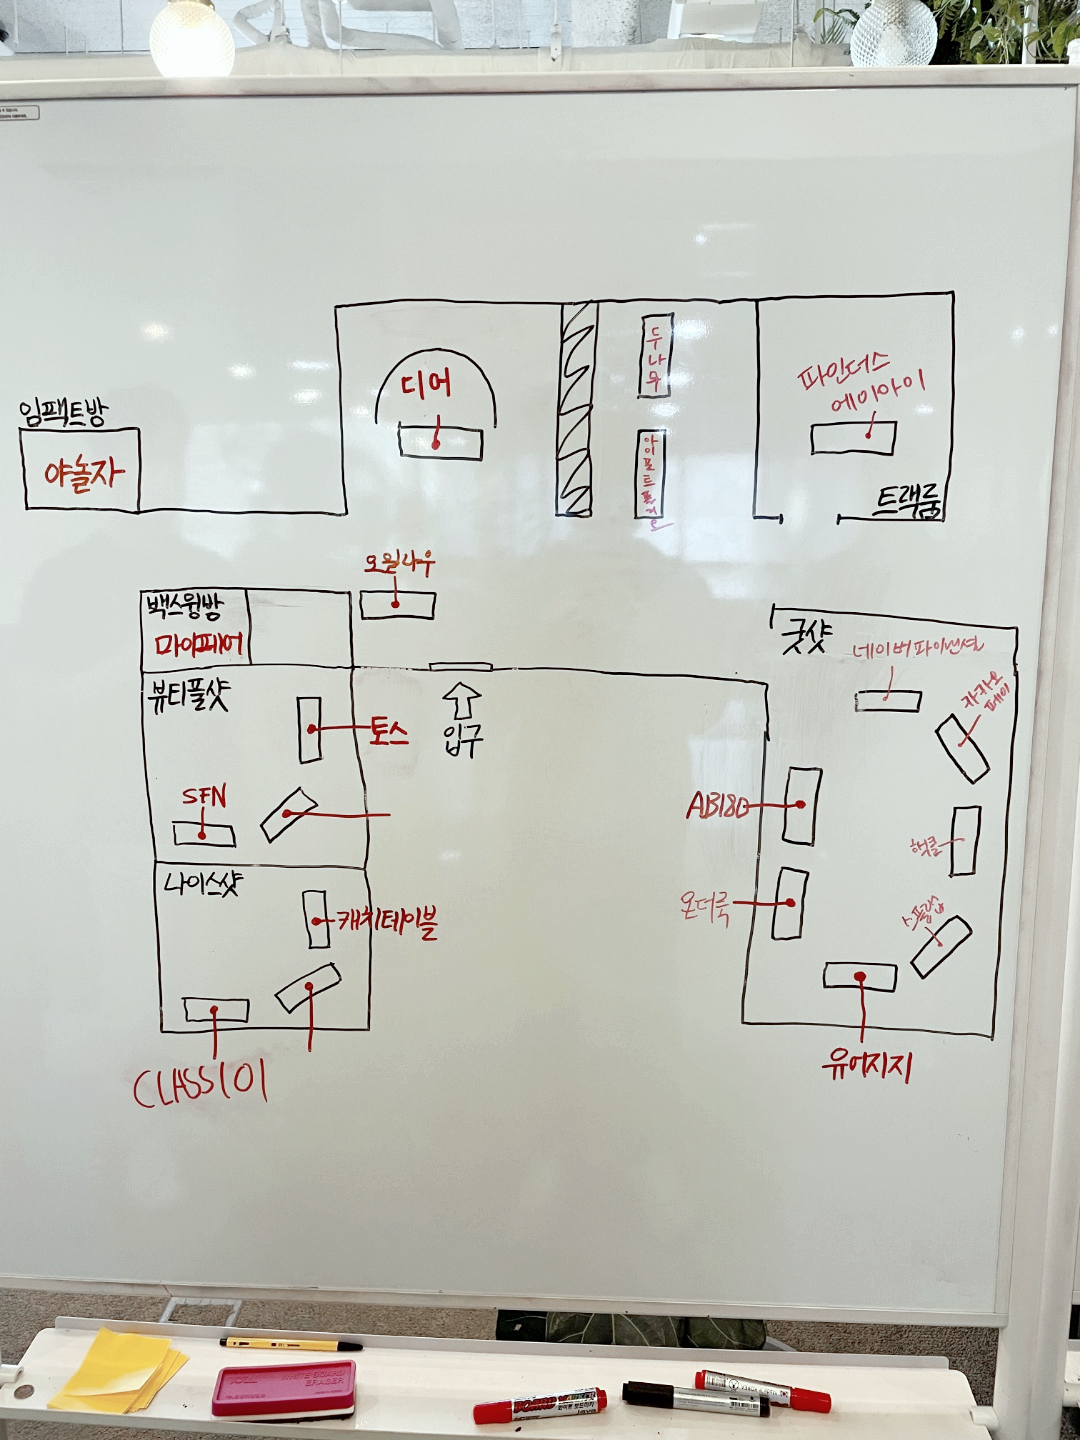 임팩트방
야놀자
디어
두나무
아이포트폴리오
파인더스
에이아이
트랙룸
오월나우
백스윙방
마이페어
뷰티풀샷
토스
SFN
입구
나이스샷
캐치테이블
CLASS101
굿샷
네이버파이낸셜
카카오
페이
AB180
핵클
온더룩
스플랩
유어지지